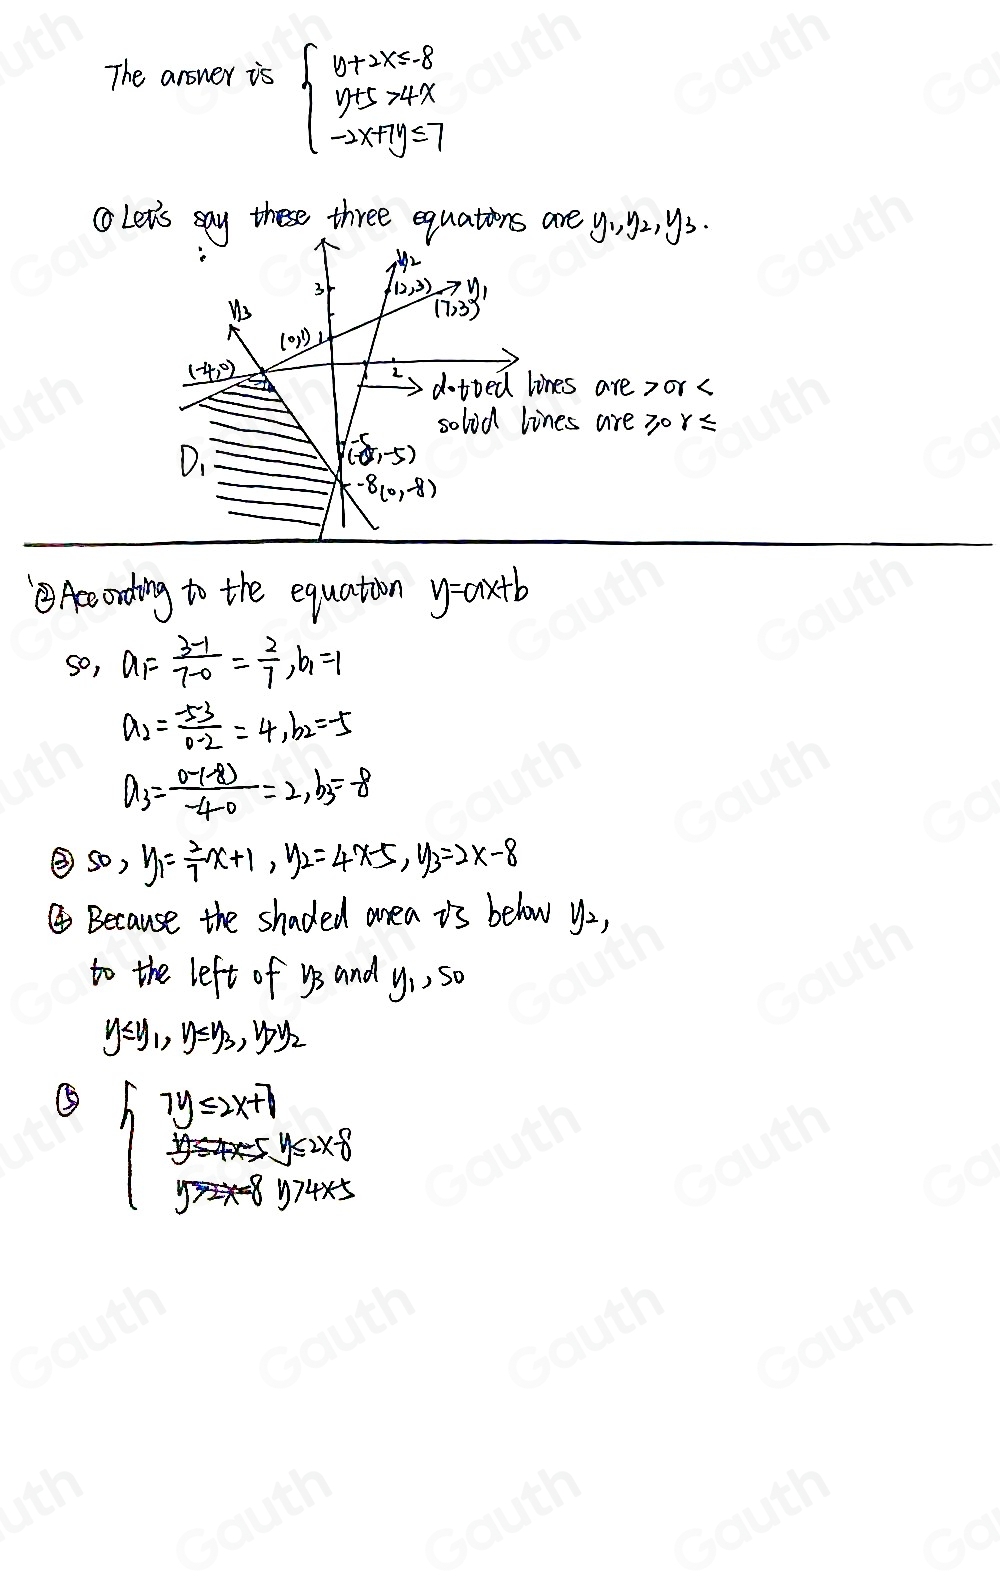 The answer is { y+2x≤-8
y+5>4x
-2x+7y≤7
① Let's say these three equations are y₁, y₂, y₃.
:
y₂
3 (2,3) y₁
y₃ (7,3)
(0,1) 1
(-4,0) 2
dotted lines are > or <
solid lines are ≥ or ≤
D₁ -5
-5)
-8 (0,-8)
② According to the equation y=ax+b
so, a₁= (3-1)/(7-0) = 2/7, b₁=1
a₂= (-5-3)/(0-2) = 4, b₂=-5
a₃= (0-(-8))/(-4-0) = 2, b₃=-8
③ so, y₁= 2/7 x+1, y₂=4x-5, y₃=2x-8
④ Because the shaded area is below y₂,
to the left of y₃ and y₁, so
y≤y₁, y≤y₃, y>y₂
⑤ { 7y≤2x+7
y≤4x-5 y≤2x-8
y>2x-8 y>4x-5
Gauth